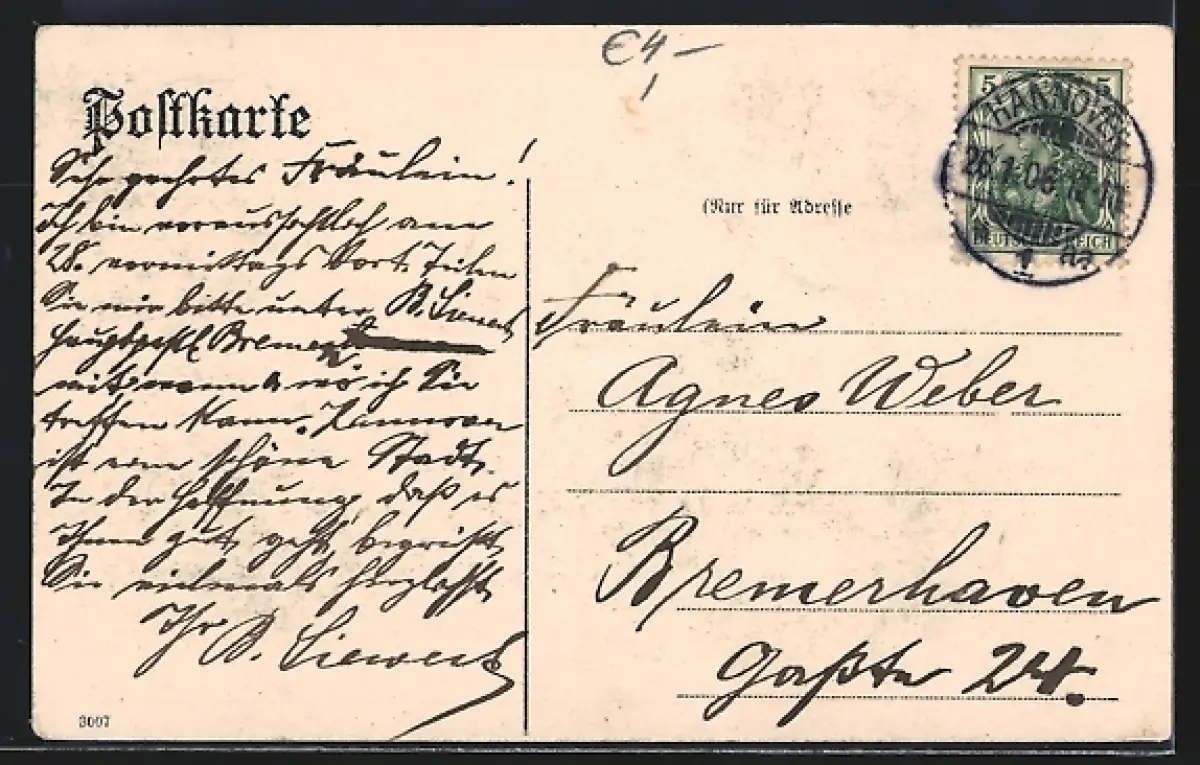 €4,-
Postkarte
Sehr geehrtes Fräulein!
Ich bin voraussichtlich am
28. vormittags dort. Teilen
Sie mir bitte unter B. Siewert
hauptpostl Bremen
mit, wann & wo ich Sie
treffen kann. Hannover
ist eine schöne Stadt.
In der Hoffnung, daß es
Ihnen gut geht, begrüßt
Sie vielmals herzlichst
Ihr B. Siewert
3007
5 5
HANNOVER
26.1.06
1
DEUTSCHES REICH
(Nur für Adresse
Fräulein
Agnes Weber
Bremerhaven
24.